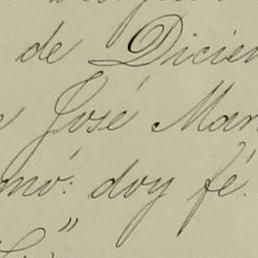 de Dicien
José Mar
mó: doy fé.